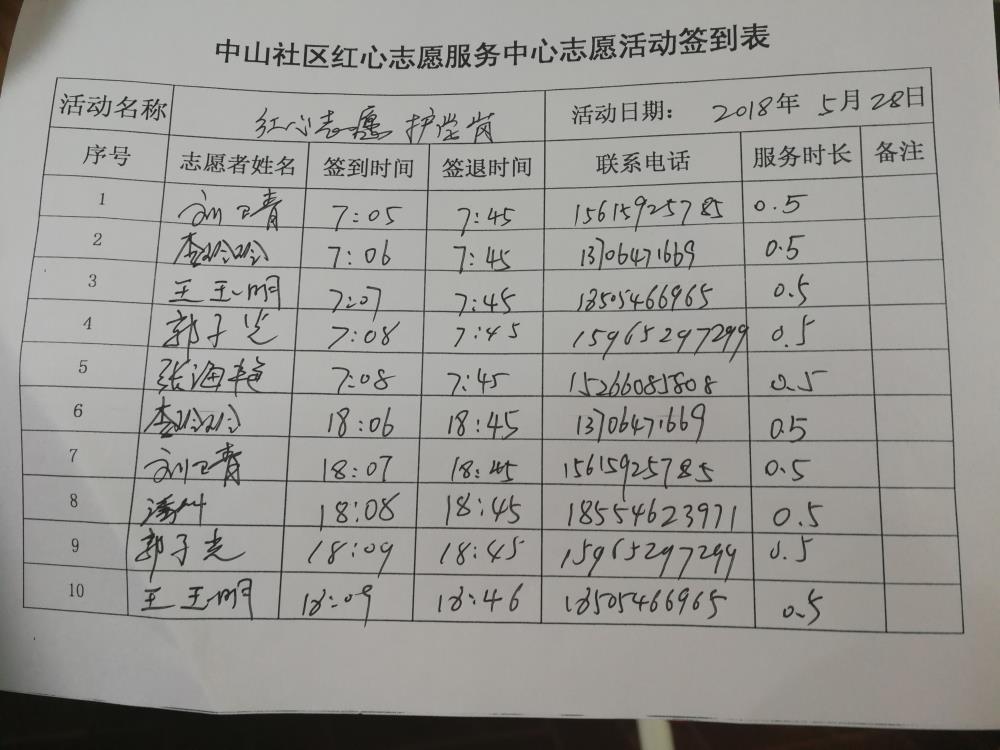 中山社区红心志愿服务中心志愿活动签到表
活动名称 红心志愿 护学岗 活动日期: 2018年 5月 28日
序号 志愿者姓名 签到时间 签退时间 联系电话 服务时长 备注
1 刘卫青 7:05 7:45 15615925785 0.5
2 李玲玲 7:06 7:45 13706471669 0.5
3 王玉明 7:07 7:45 18505466965 0.5
4 郭子光 7:08 7:45 15965297299 0.5
5 张海艳 7:08 7:45 15266085808 0.5
6 李玲玲 18:06 18:45 13706471669 0.5
7 刘卫青 18:07 18:45 15615925785 0.5
8 18:08 18:45 18554623971 0.5
9 郭子光 18:09 18:45 15965297299 0.5
10 王玉明 18:09 18:46 18505466965 0.5